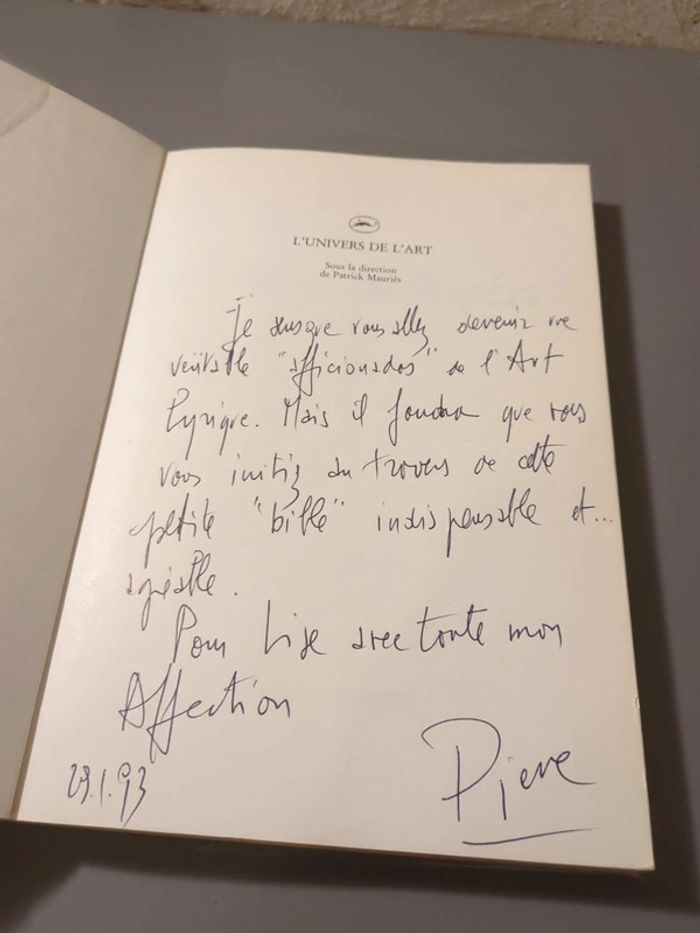 L'UNIVERS DE L'ART
Sous la direction
de Patrick Mauriès
Je pense que vous allez devenir une
véritable "afficionados" de l'Art
Lyrique. Mais il faudra que vous
vous initiez au travers de cette
petite "bible" indispensable et...
agréable.
Pour Lise avec toute mon
Affection
29.1.93
Pierre